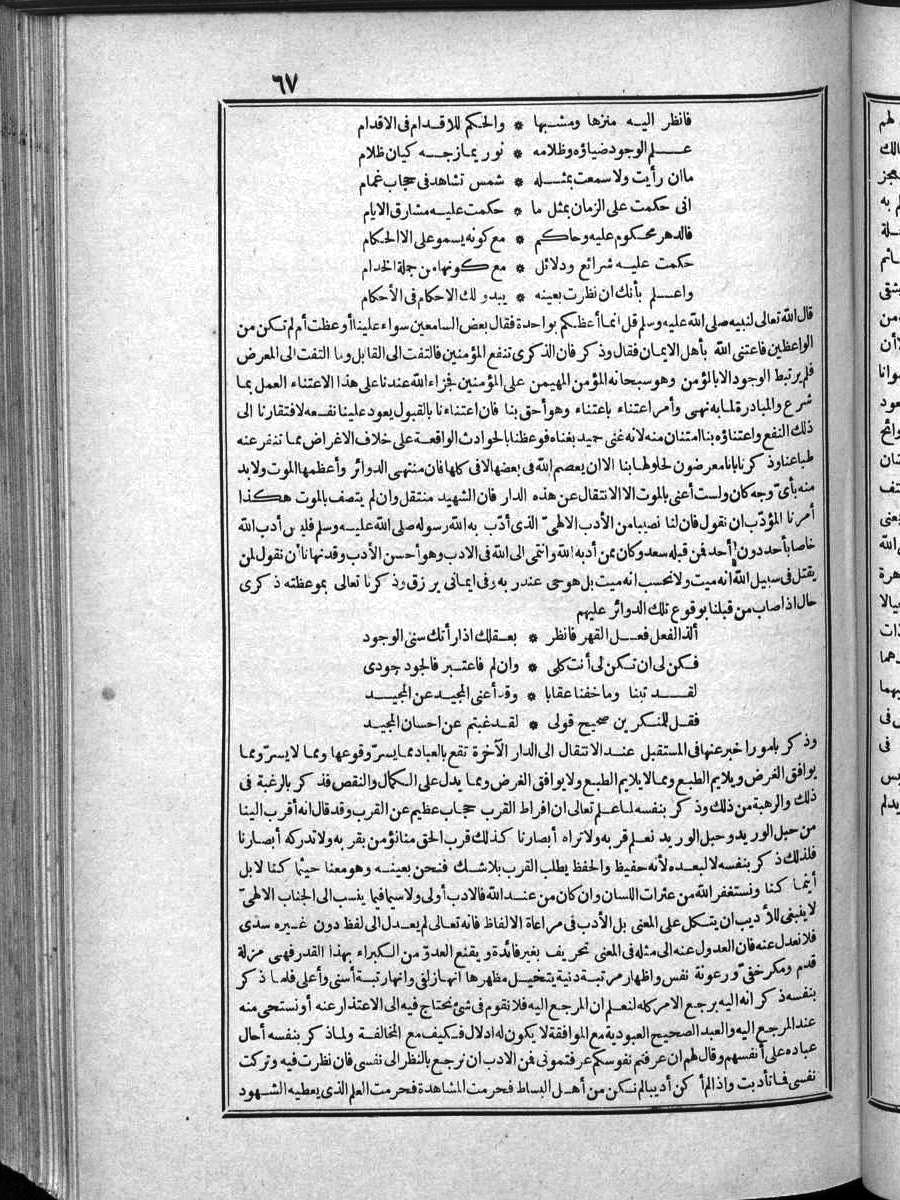 ٦٧
فانظر اليه منزها ومشبها * والحكم للاقدام فى الاقدام
علم الوجود ضياؤه وظلامه * نور يمازجه كيان ظلام
ماان رأيت ولا سمعت بمثله * شمس تشاهد فى حجاب غمام
انى حكمت على الزمان بمثل ما * حكمت عليه مشارق الايام
فالدهر محكوم عليه وحاكم * مع كونه يسمو على الاحكام
حكمت عليه شرائع ودلائل * مع كونها من جملة الخدام
واعلم بأنك ان نظرت بعينه * يبدو لك الاحكام فى الأحكام
قال الله تعالى لنبيه صلى الله عليه وسلم قل انما أعظكم بواحدة فقال بعض السامعين سواء علينا أوعظت أم لم تكن من
الواعظين فاعتنى الله بأهل الايمان فقال وذكر فان الذكرى تنفع المؤمنين فالتفت الى القابل وما التفت الى المعرض
فلم يرتبط الوجود الا بالمؤمن وهو سبحانه المؤمن المهيمن على المؤمنين فجزاء الله عندنا على هذا الاعتناء العمل بما
شرع والمبادرة لما به نهى وأمر اعتناء باعتناء وهو أحق بنا فان اعتناءنا بالقبول يعود علينا نفعه لافتقارنا الى
ذلك النفع واعتناؤه بنا امتنان منه لانه غنى حميد بغناه فوعظنا بالحوادث الواقعة على خلاف الاغراض مما تنفر عنه
طباعنا وذكرنا بانا معرضون لحلولها بنا الا ان يعصم الله فى بعضها لا فى كلها فان منتهى الدوائر وأعظمها الموت ولا بد
منه بأىّ وجه كان ولست أعنى بالموت الا الانتقال عن هذه الدار فان الشهيد منتقل وان لم يتصف بالموت هكذا
أمرنا المؤدّب ان نقول فان لنا نصيبا من الأدب الالهىّ الذى أدّب به الله رسوله صلى الله عليه وسلم فليس أدب الله
خاصا بأحد دون أحد فمن قبله سعد وكان ممن أدبه الله وانتمى الى الله فى الادب وهو أحسن الأدب وقد نهانا أن نقول لمن
يقتل فى سبيل الله انه ميت ولا نحسب انه ميت بل هو حى عند ربه وفى ايمانى يرزق وذكرنا تعالى بموعظته ذكرى
حال اذ اصاب من قبلنا بوقوع تلك الدوائر عليهم
ألذ الفعل فعل القهر فانظر * بعقلك اذ ارأتك سنى الوجود
فكن لى ان تكن لى أنت كلى * وان لم فاعتبر فالجود جودى
لقد تبنا وما خفنا عقابا * وقد أعنى المجيد عن المجيد
فقل للمنكرين صحيح قولى * لقد غبتم عن احسان المجيد
وذكر بامور اخبر عنها فى المستقبل عند الانتقال الى الدار الآخرة تقع بالعباد مما يسرّ وقوعها ومما لا يسرّ ومما
يوافق الغرض ويلايم الطبع ومما لا يلايم الطبع ولا يوافق الغرض ومما يدل على الكمال والنقص فذكر بالرغبة فى
ذلك والرهبة من ذلك وذكر بنفسه لما علم تعالى ان افراط القرب حجاب عظيم عن القرب وقد قال انه أقرب الينا
من حبل الوريد وحبل الوريد نعلم قربه ولا تراه أبصارنا كذلك قرب الحق منا نؤمن بقربه ولا تدركه أبصارنا
فلذلك ذكر بنفسه لا لبعده لأنه حفيظ والحفظ يطلب القرب بلا شك فنحن بعينه وهو معنا حيثما كنا لا بل
أينما كنا ونستغفر الله من عثرات اللسان وان كان من عند الله فالادب أولى ولا سيما فيما ينسب الى الجناب الالهىّ
لا ينبغى للأديب ان يتكل على المعنى بل الأدب فى مراعاة الالفاظ فانه تعالى لم يعدل الى لفظ دون غيره سدى
فلا نعدل عنه فان العدول عنه الى مثله فى المعنى تحريف بغير فائدة ويقنع العدوّ من الكبراء بهذا القدر فهى مزلة
قدم ومكر خفىّ ورعونة نفس واظهار مرتبة دنية يتخيل مظهرها انها زلفى وانها رتبة أسنى وأعلى فلما ذكر
بنفسه ذكر انه اليه يرجع الامر كله لنعلم ان المرجع اليه فلا نقوم فى شئ نحتاج فيه الى الاعتذار عنه أو نستحى منه
عند المرجع اليه والعبد الصحيح العبودية مع الموافقة لا يكون له ادلال فكيف مع المخالفة ولما ذكر بنفسه أحال
عباده على أنفسهم وقال لهم ان عرفتم نفوسكم عرفتمونى فمن الادب ان نرجع بالنظر الى نفسى فان نظرت فيه وتركت
نفسى فما تأدبت واذا لم أكن أديبا لم نكن من أهل البساط فحرمت المشاهدة فحرمت العلم الذى يعطيه الشهود